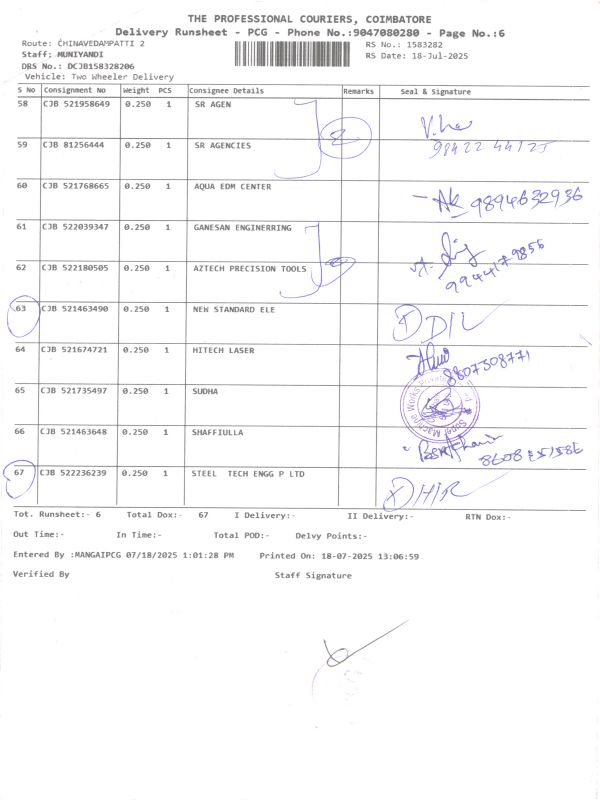 THE PROFESSIONAL COURIERS, COIMBATORE
Delivery Runsheet - PCG - Phone No.:9047080280 - Page No.:6
Route: CHINAVEDAMPATTI 2
RS No.: 1583282
Staff: MUNIYANDI
RS Date: 18-Jul-2025
DRS No.: DCJB158328206
Vehicle: Two Wheeler Delivery
S No Consignment No Weight PCS Consignee Details Remarks Seal & Signature
58 CJB 521958649 0.250 1 SR AGEN
59 CJB 81256444 0.250 1 SR AGENCIES
60 CJB 521768665 0.250 1 AQUA EDM CENTER 9894632936
61 CJB 522039347 0.250 1 GANESAN ENGINERRING
62 CJB 522180505 0.250 1 AZTECH PRECISION TOOLS
63 CJB 521463490 0.250 1 NEW STANDARD ELE
64 CJB 521674721 0.250 1 HITECH LASER 8807308771
65 CJB 521735497 0.250 1 SUDHA
66 CJB 521463648 0.250 1 SHAFFIULLA
67 CJB 522236239 0.250 1 STEEL TECH ENGG P LTD
Tot. Runsheet:- 6 Total Dox:- 67 I Delivery:- II Delivery:- RTN Dox:-
Out Time:- In Time:- Total POD:- Delvy Points:-
Entered By :MANGAIPCG 07/18/2025 1:01:28 PM Printed On: 18-07-2025 13:06:59
Verified By Staff Signature